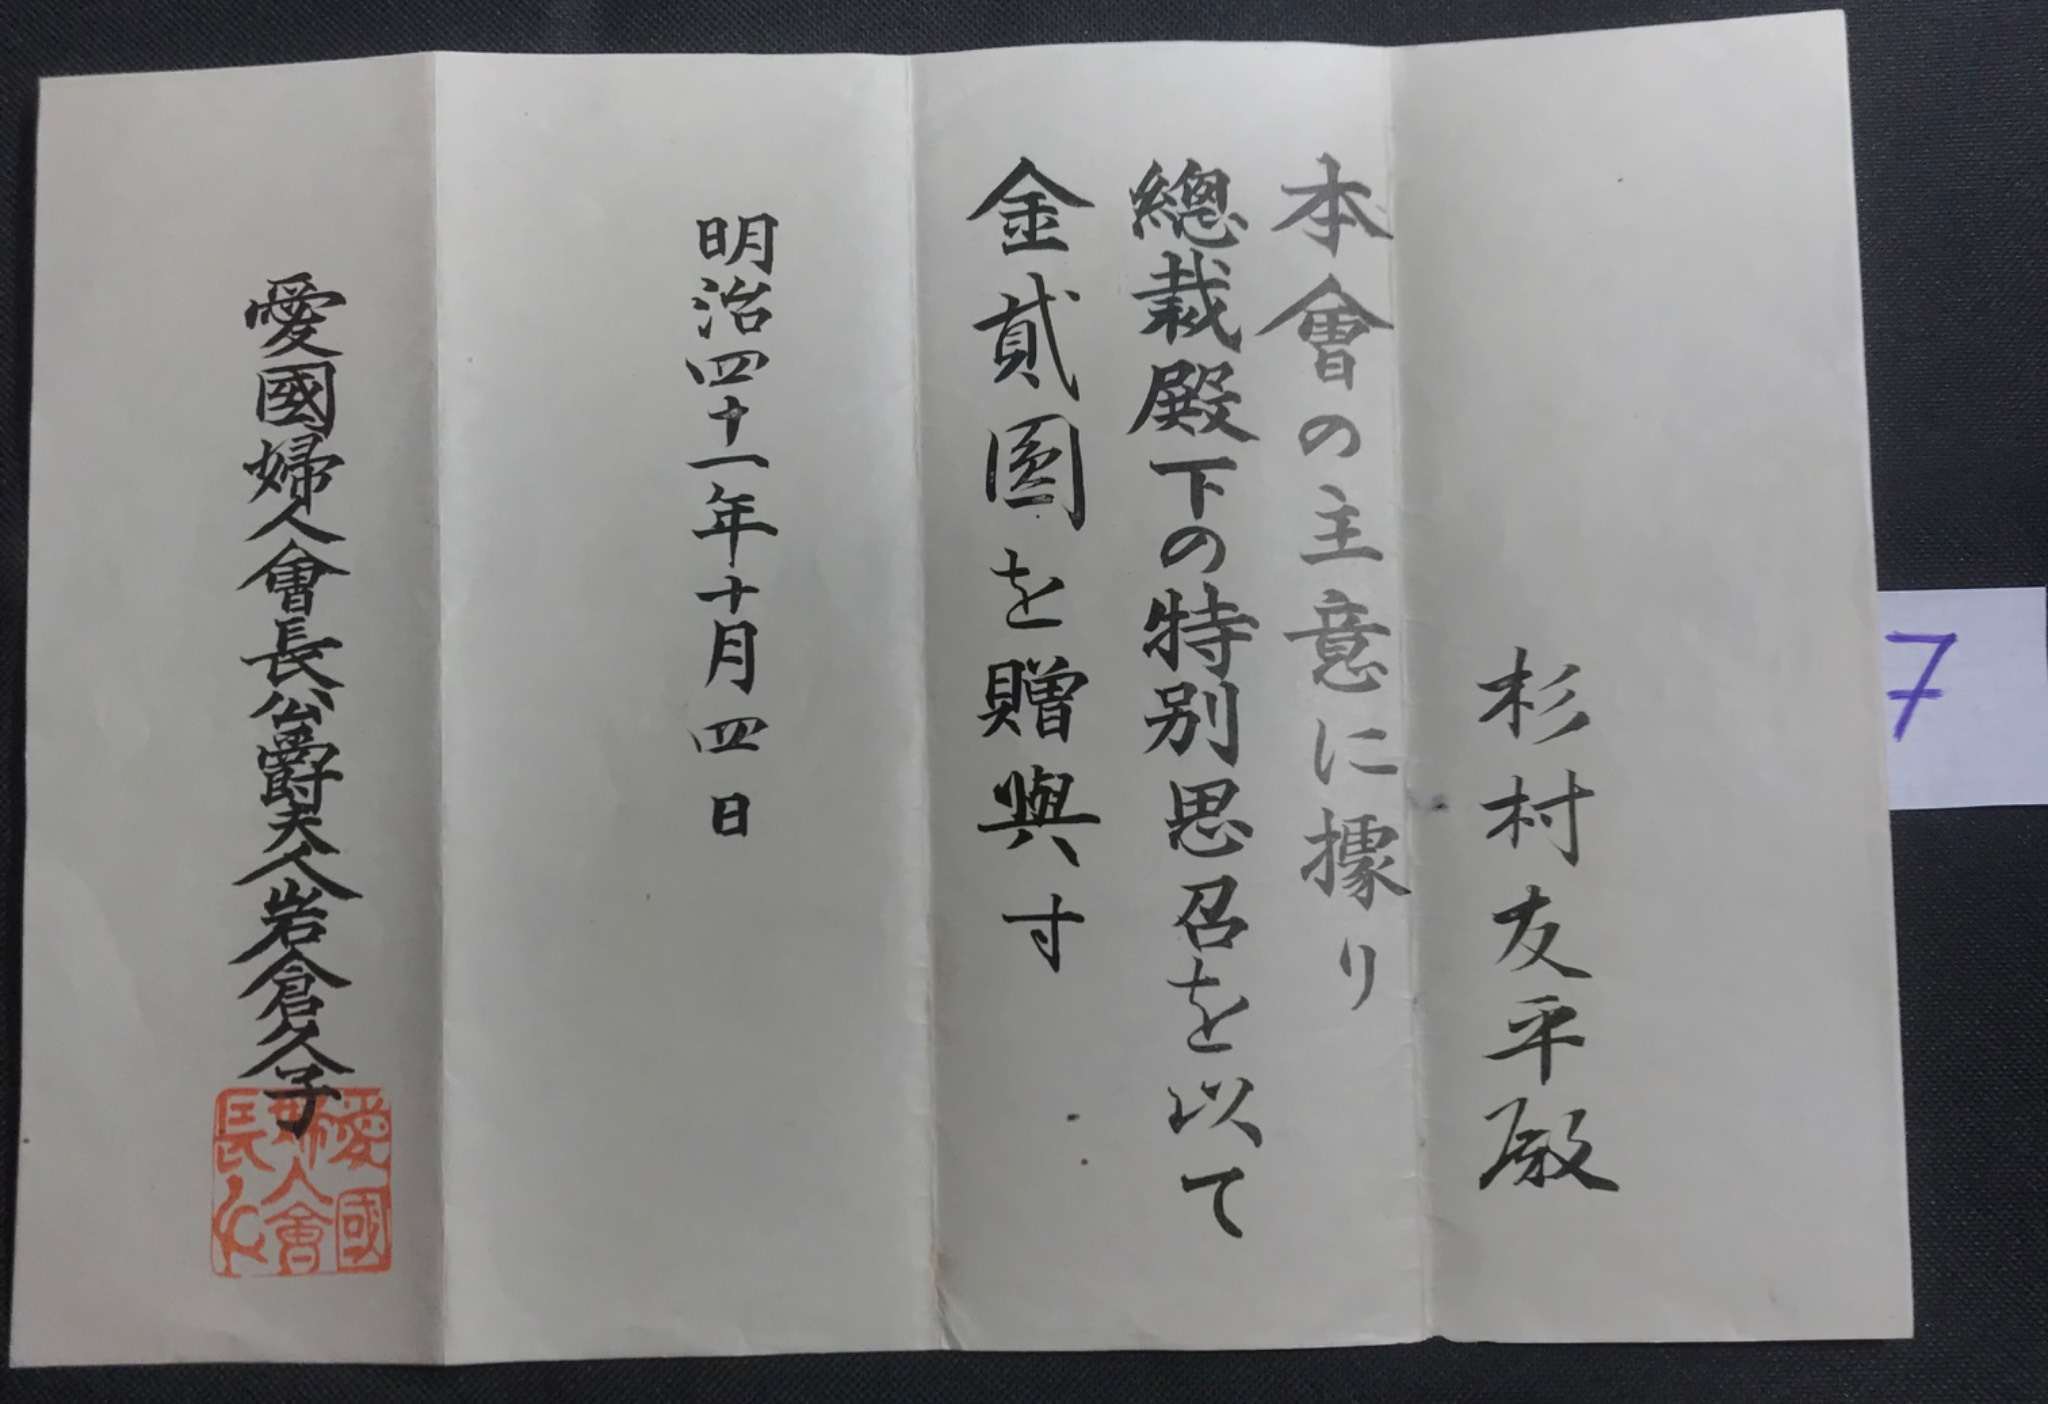 杉村友平殿
本會の主意に據り
總裁殿下の特別思召を以て
金貳圓を贈與す
明治四十一年十月四日
愛國婦人會長公爵夫人岩倉久子
愛國
婦人會
長印
7